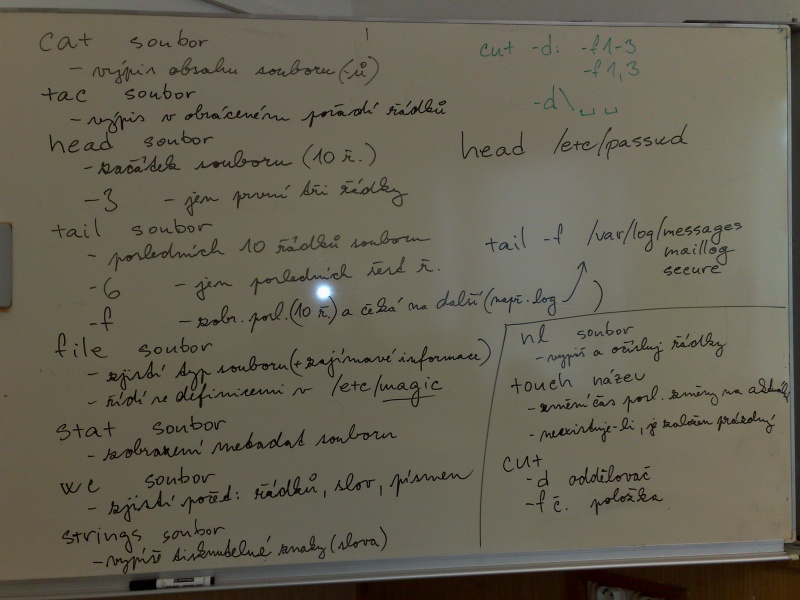 cat soubor
- výpis obsahu souboru (-ů)
tac soubor
- výpis v obráceném pořadí řádků
head soubor
- začátek souboru (10 ř.)
-3 - jen první tři řádky
tail soubor
- posledních 10 řádků souboru
-6 - jen posledních šest ř.
-f - zobr. posl. (10 ř.) a čeká na další (např. log )
file soubor
- zjistí typ souboru (+ zajímavé informace)
- řídí se definicemi v /etc/magic
stat soubor
- zobrazení metadat souboru
wc soubor
- zjistí počet: řádků, slov, písmen
strings soubor
- vypíše tisknutelné znaky (slova)
cut -d: -f1-3
-f1,3
-d\␣␣
head /etc/passwd
tail -f /var/log/messages
maillog
secure
nl soubor
- vypiš a očísluj řádky
touch název
- změní čas posl. změny na
- neexistuje-li, je založen prázdný
cut
-d oddělovač
-f č. položka